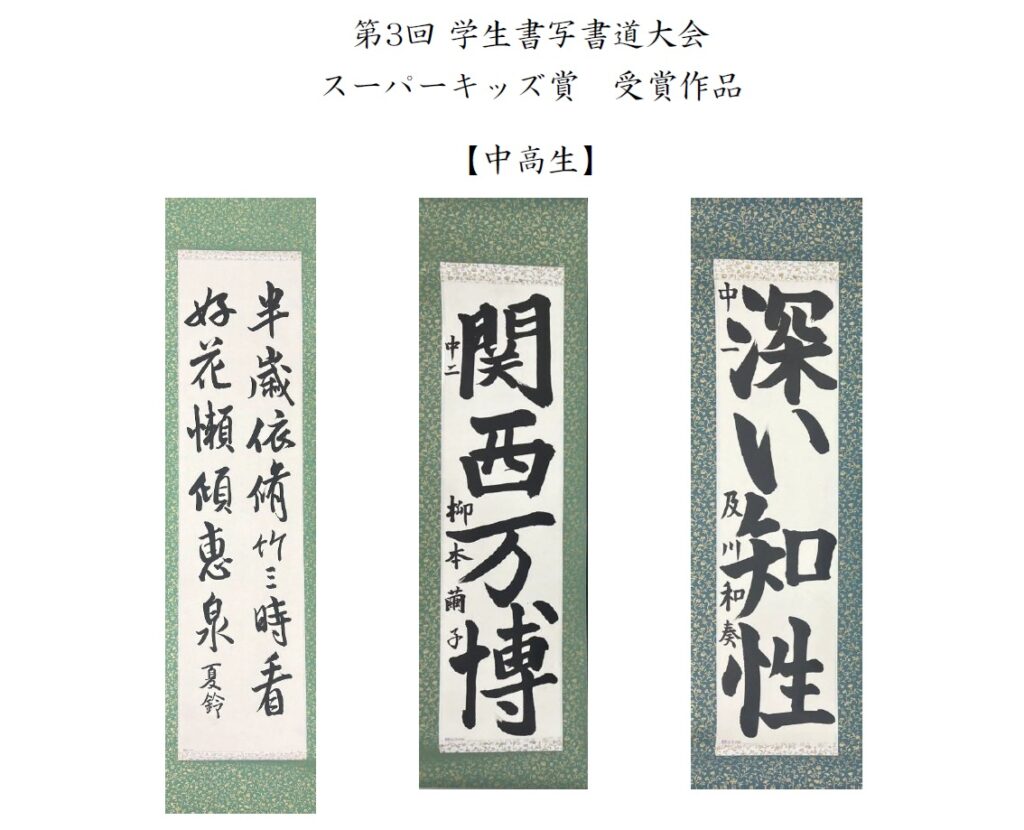 第3回 学生書写書道大会
スーパーキッズ賞　受賞作品
【中高生】
半歳依脩竹三時看
好花懶傾惠泉
夏鈴
関西万博
中二
柳本繭子
深い知性
中一
及川和奏